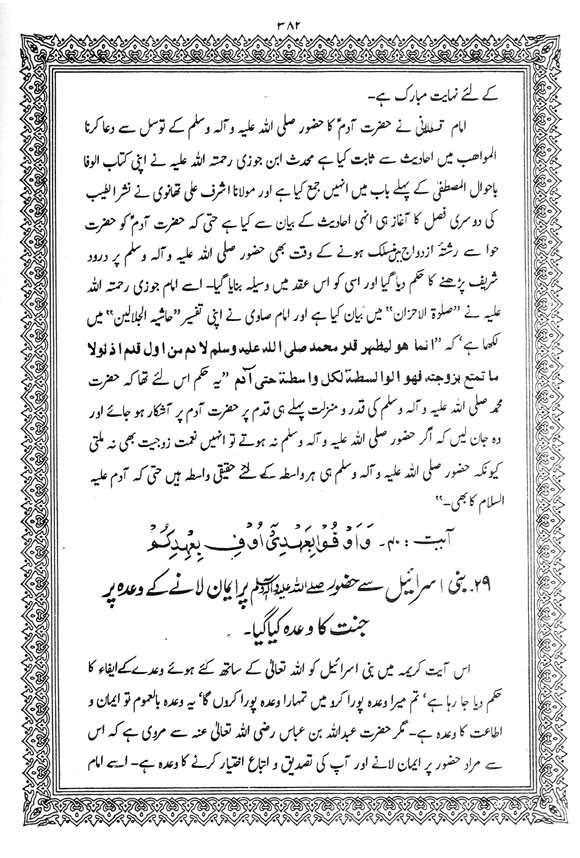 ۳۸۲
کے لئے نہایت مبارک ہے۔
امام قسطلانی نے حضرت آدمؑ کا حضور صلی اللہ علیہ و آلہ وسلم کے توسل سے دعا کرنا
المواھب میں احادیث سے ثابت کیا ہے محدث ابن جوزی رحمتہ اللہ علیہ نے اپنی کتاب الوفا
باحوال المصطفیٰ کے پہلے باب میں انہیں جمع کیا ہے اور مولانا اشرف علی تھانوی نے نشر الطیب
کی دوسری فصل کا آغاز ہی انہی احادیث کے بیان سے کیا ہے حتی کہ حضرت آدمؑ کو حضرت
حوا سے رشتۂ ازدواج میں منسلک ہونے کے وقت بھی حضور صلی اللہ علیہ و آلہ وسلم پر درود
شریف پڑھنے کا حکم دیا گیا اور اسی کو اس عقد میں وسیلہ بنایا گیا۔ اسے امام جوزی رحمتہ اللہ
علیہ نے "صلوٰۃ الاحزان" میں بیان کیا ہے اور امام صاوی نے اپنی تفسیر "حاشیہ الجلالین" میں
لکھا ہے' کہ "انما هو ليظهر قدر محمد صلى الله عليه وسلم لادم من اول قدم اذ لولا
ما تمتع بزوجته فهو الواسطة لكل واسطة حتى آدم "یہ حکم اس لئے تھا کہ حضرت
محمد صلی اللہ علیہ و آلہ وسلم کی قدر و منزلت پہلے ہی قدم پر حضرت آدم پر آشکار ہو جائے اور
وہ جان لیں کہ اگر حضور صلی اللہ علیہ و آلہ وسلم نہ ہوتے تو انہیں نعمت زوجیت بھی نہ ملتی
کیونکہ حضور صلی اللہ علیہ و آلہ وسلم ہی ہر واسطہ کے لئے حقیقی واسطہ ہیں حتی کہ آدم علیہ
السلام کا بھی۔"
آیت : ۴۰۔ وَاَوْفُوْا بِعَهْدِیْٓ اُوْفِ بِعَهْدِکُمْ
۲۹. بنی اسرائیل سے حضور صلی اللہ علیہ وآلہ وسلم پر ایمان لانے کے وعدہ پر
جنت کا وعدہ کیا گیا۔
اس آیت کریمہ میں بنی اسرائیل کو اللہ تعالیٰ کے ساتھ کئے ہوئے وعدے کے ایفاء کا
حکم دیا جا رہا ہے' تم میرا وعدہ پورا کرو میں تمہارا وعدہ پورا کروں گا' یہ وعدہ بالعموم تو ایمان و
اطاعت کا وعدہ ہے۔ مگر حضرت عبداللہ بن عباس رضی اللہ تعالیٰ عنہ سے مروی ہے کہ اس
سے مراد حضور پر ایمان لانے اور آپ کی تصدیق و اتباع اختیار کرنے کا وعدہ ہے۔ اسے امام